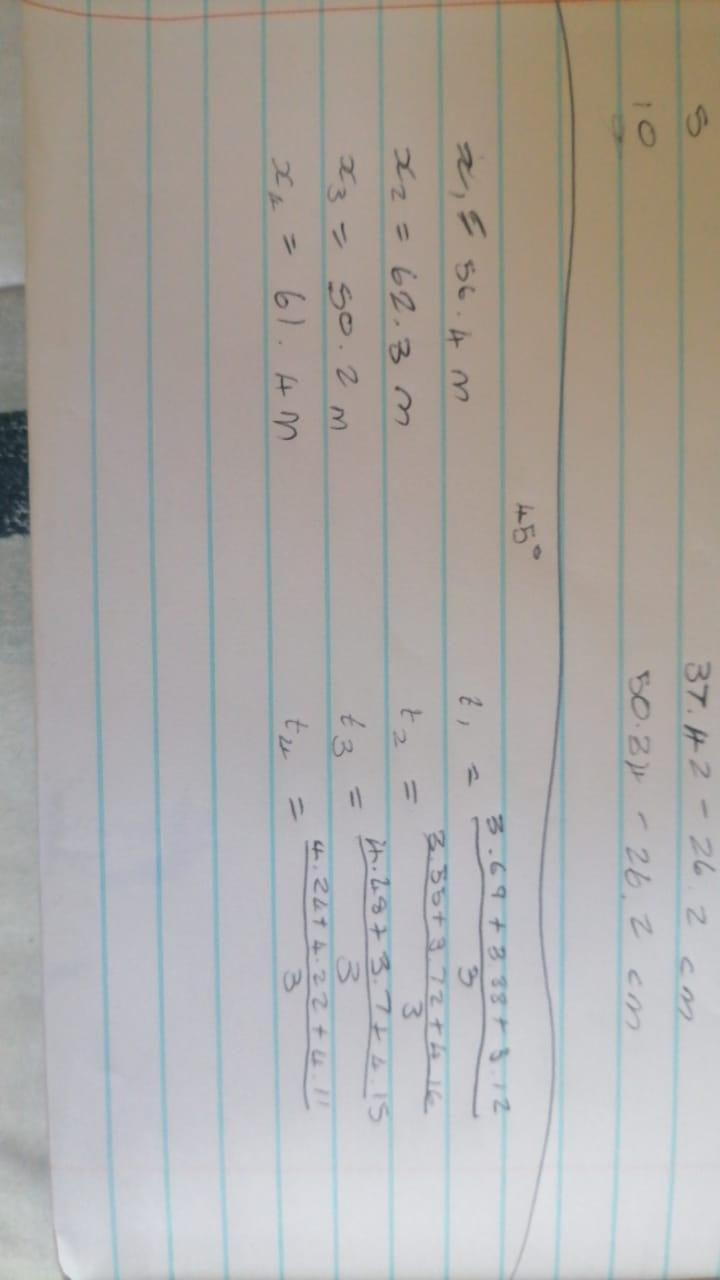 5 37.42 - 26.2 cm
10 50.34 - 26.2 cm
45°
x₁ = 56.4 m t₁ = 3.69 + 3.38 + 3.12 / 3
x₂ = 62.3 m t₂ = 3.55 + 3.72 + 4.16 / 3
x₃ = 50.2 m t₃ = 4.48 + 3.7 + 4.15 / 3
x₄ = 61.4 m t₄ = 4.24 + 4.22 + 4.11 / 3